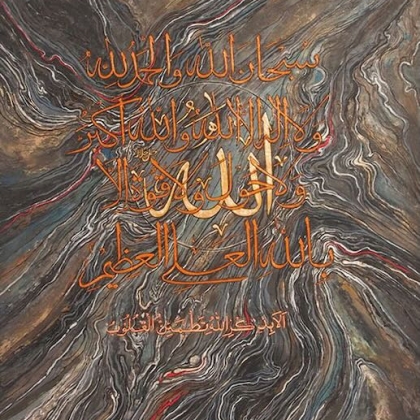 سُبْحَانَ اللهِ وَالْحَمْدُ لِلهِ
وَلَا إِلٰهَ إِلَّا اللهُ وَاللهُ أَكْبَرُ
وَلَا حَوْلَ وَلَا قُوَّةَ إِلَّا
الله
بِاللهِ الْعَلِيِّ الْعَظِيمِ
أَلَا بِذِكْرِ اللهِ تَطْمَئِنُّ الْقُلُوبُ